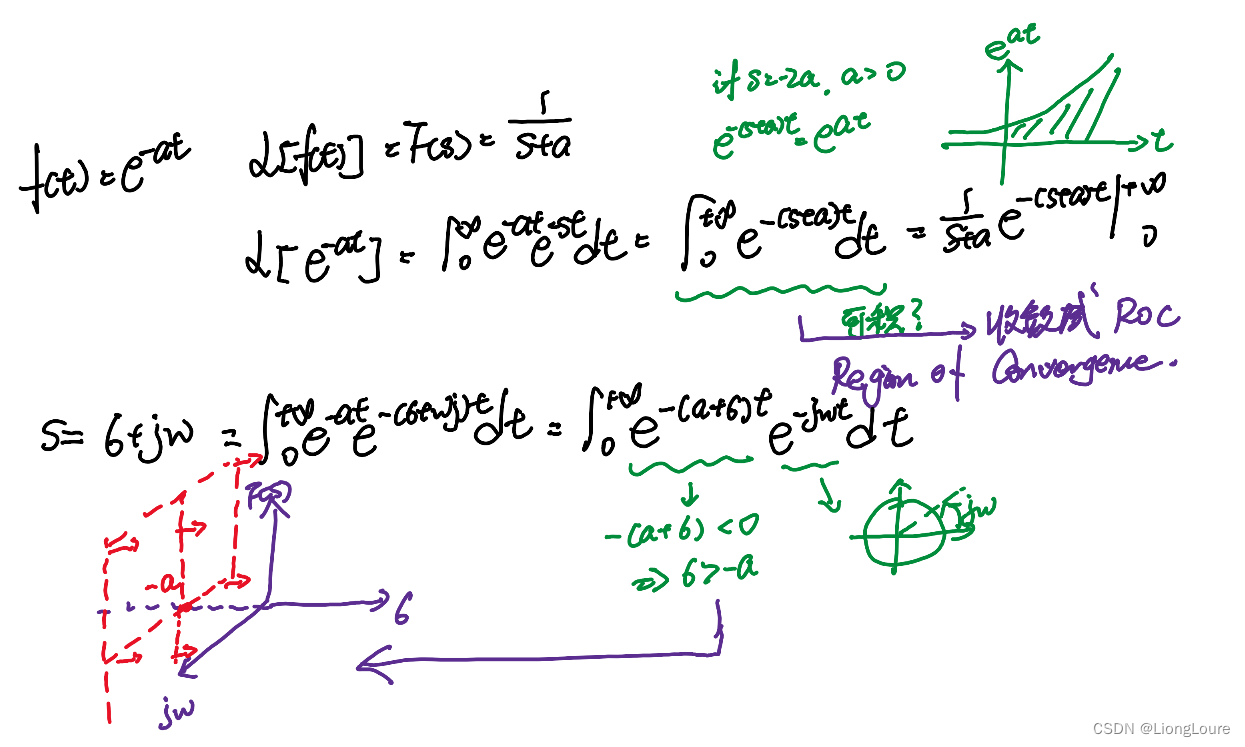 e^{at}
if s=-2a, a>0
e^{-(s+a)t} = e^{at}
t
f(t) = e^{-at} L[f(t)] = F(s) = \frac{1}{s+a}
L[e^{-at}] = \int_0^{+∞} e^{-at} e^{-st} dt = \int_0^{+∞} e^{-(s+a)t} dt = \frac{1}{s+a} e^{-(s+a)t} |_0^{+∞}
可积? 收敛域 ROC
Region of Convergence.
S = σ+jw = \int_0^{+∞} e^{-at} e^{-(σ+wj)t} dt = \int_0^{+∞} e^{-(a+σ)t} e^{-jwt} dt
F(s)
jw
-(a+σ) < 0
=> σ > -a
-a
σ
jw
CSDN @LiongLoure